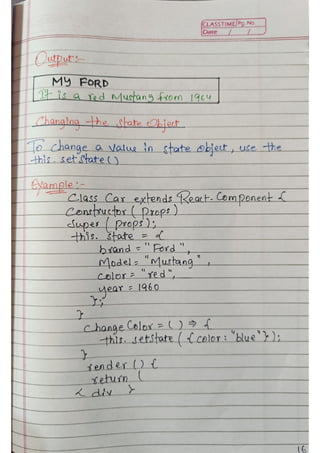 CLASSTIME Pg. No.
Date / /
Output:-
MY FORD
It is a red Mustang from 1964
Changing the State Object
To change a value in state object, use the
this.setState()
Example:-
Class Car extends React.Component {
Constructor (Props)
Super (Props);
this.state = {
brand = "Ford",
Model = "Mustang",
color = "red",
year = 1960
};
}
change Color = ( ) => {
this.setstate ( { color : "blue" } );
}
render () {
return (
< div }
16